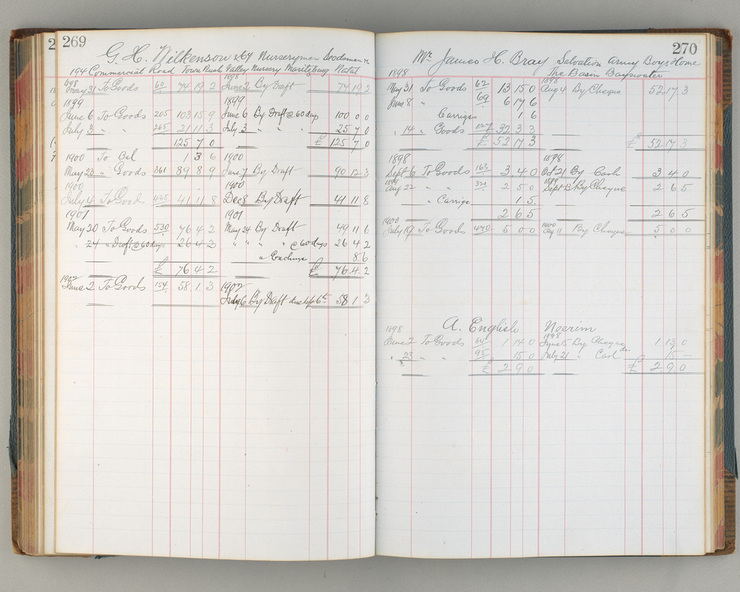 269
G. H. Wilkenson & Co Nurserymen Seedsmen
194 Commercial Road Town Bush Valley Nursery Maritzburg Natal
1898 1898
May 31 To Goods 62 74 19 2 June 2 By Draft 74 19 2
1899 1899
June 6 To Goods 205 103 15 9 June 6 By Draft @ 60 days 100 0 0
July 3 " " 265 21 11 3 July 3 " " 25 7 0
125 7 0 £ 125 7 0
1900 To Bal 1 3 6 1900
May 23 " Goods 361 89 8 9 June 7 By Draft 90 12 3
1900 1900
July 4 To Goods 41 11 8 Dec 8 By Draft 41 11 8
1901 1901
May 20 To Goods 530 76 4 2 May 24 By Draft 49 11 6
" 24 " Draft @ 60 days 26 4 2 " " " " @ 60 days 26 4 2
" Exchange 8 6
£ 76 4 2 £ 76 4 2
1902 1902
June 2 To Goods 154 58 1 3
July 6 By Draft due 58 1 3
270
Mr James H. Bray Salvation Army Boys Home
The Basin Bayswater
1898 1898
May 31 To Goods 62 13 15 0 Aug 4 By Cheque 52 17 3
June 8 " " 69 6 17 6
Carriage 1 6
" 14 " Goods 127 32 3 3
£ 52 17 3 £ 52 17 3
1898 1898
Sept 6 To Goods 162 3 4 0 Oct 21 By Cash 3 4 0
1899 1899
Aug 22 " " 2 5 0 Sept 13 By Cheque 2 6 5
" Carriage 1 5
2 6 5 2 6 5
1900 1900
July 19 To Goods 470 5 0 0 By Cheque 5 0 0
A. English Neerim
1898 1898
June 2 To Goods 1 14 0 June 15 By Cheque 1 14 0
" 23 " " 95 15 0 July 21 " Cash 15 –
£ 2 9 0 £ 2 9 0